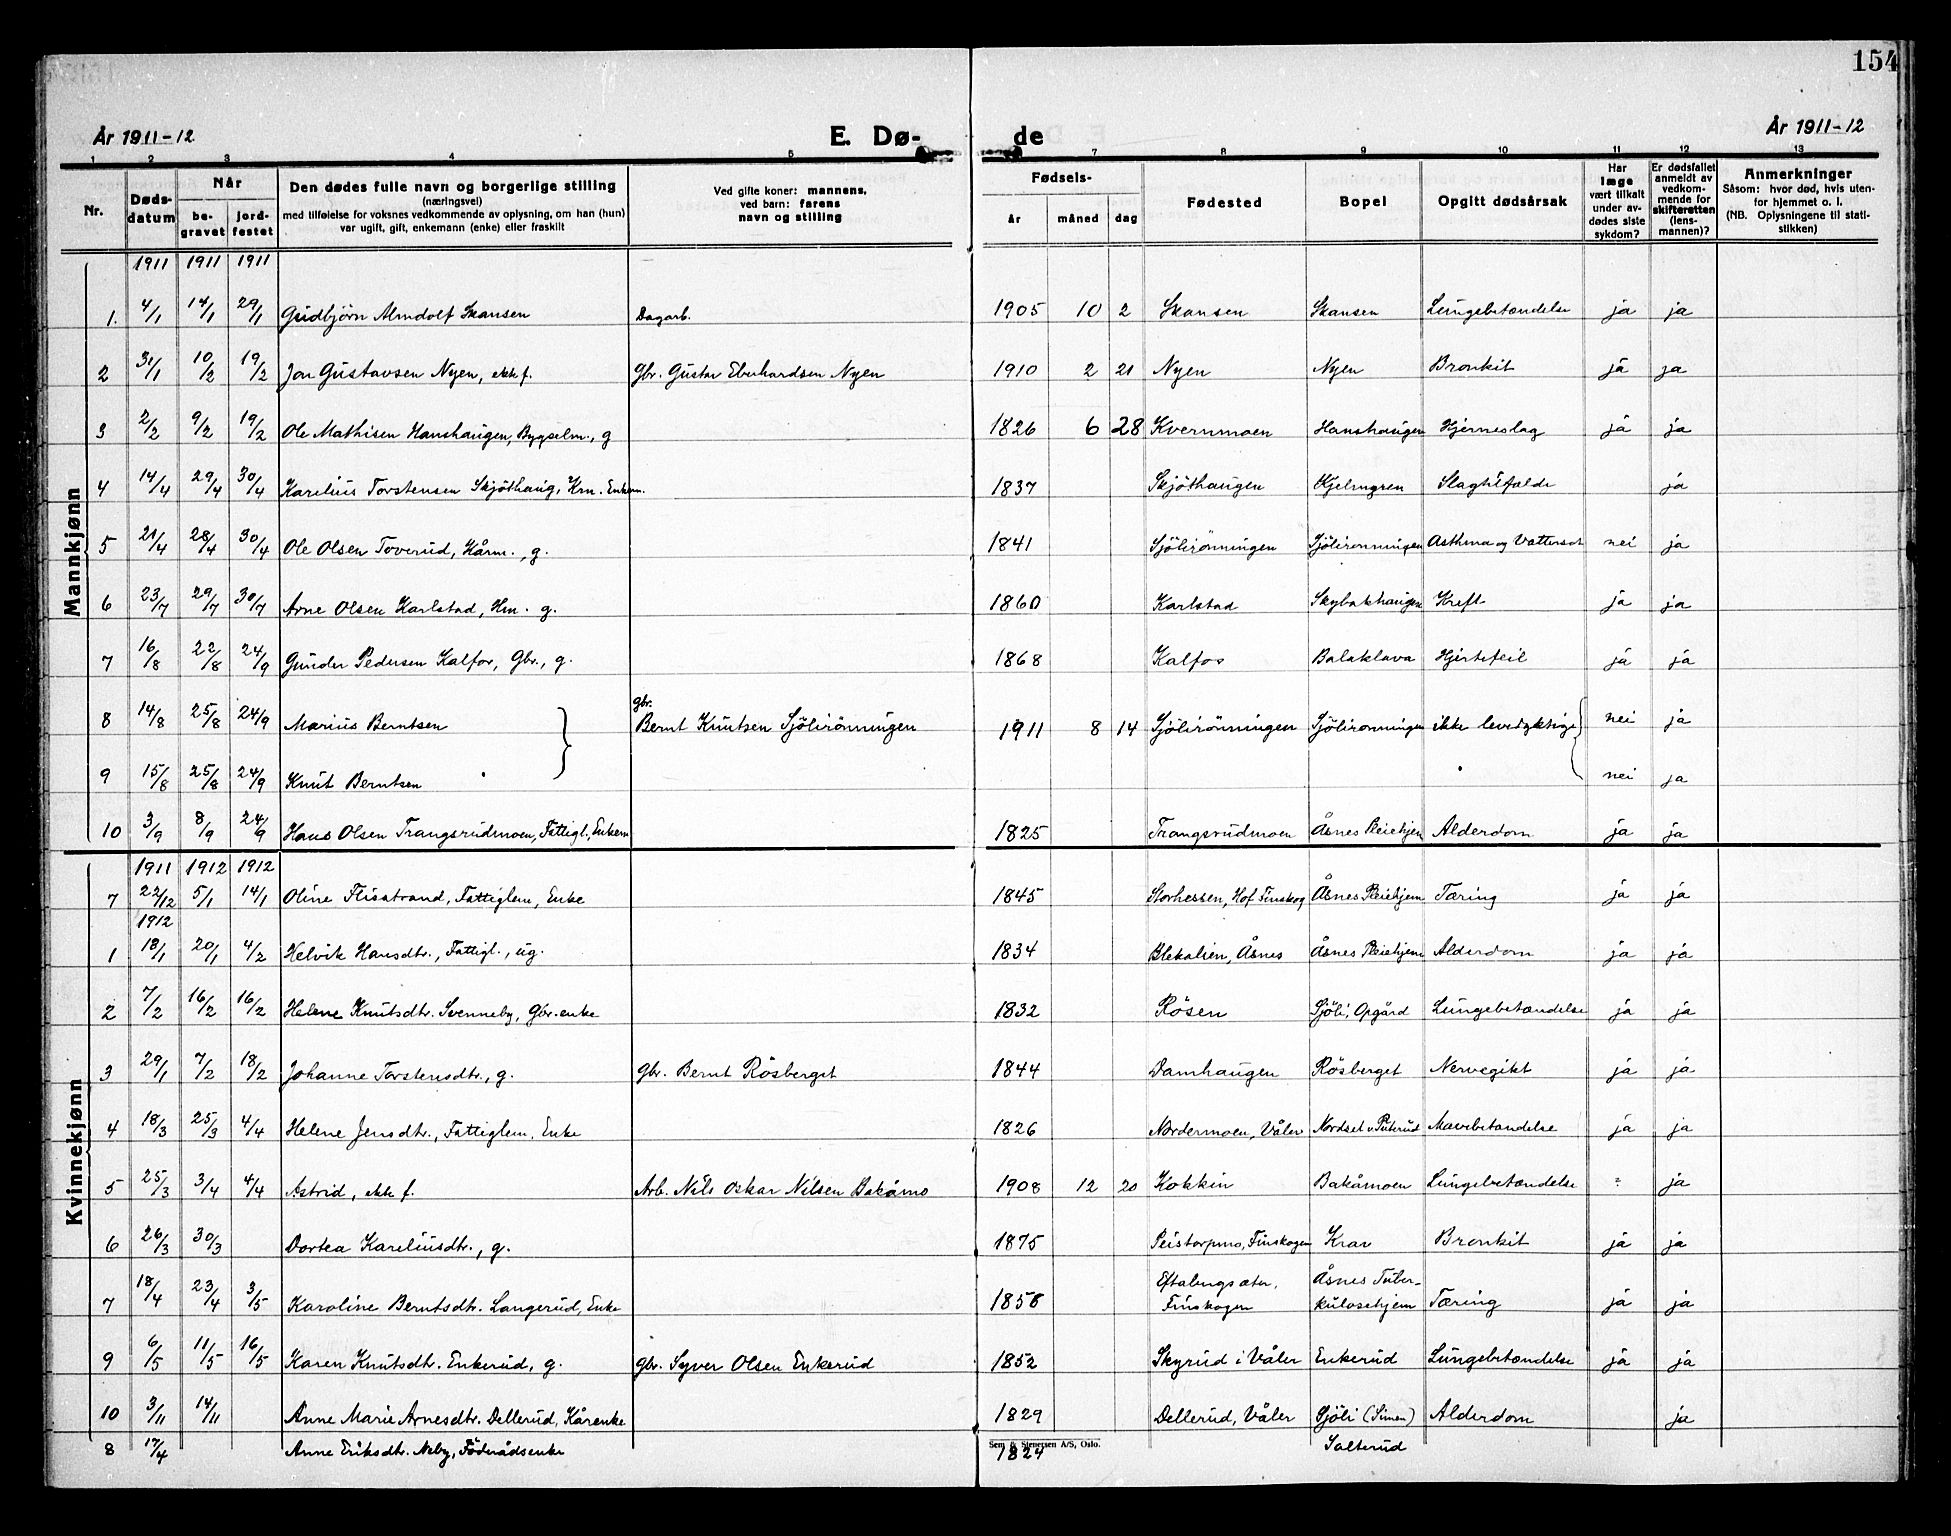 154
År 1911-12 E. Dø- de År 1911-12
1 2 3 4 5 7 8 9 10 11 12 13
Nr. Døds-datum Når be-gravet jord-festet Den dødes fulle navn og borgerlige stilling (næringsvei) med tilføielse for voksnes vedkommende av oplysning, om han (hun) var ugift, gift, enkemann (enke) eller fraskilt Ved gifte koner: mannens, ved barn: farens navn og stilling Fødsels- år måned dag Fødested Bopel Opgitt dødsårsak Har læge vært tilkalt under av-dødes siste sykdom? Er dødsfallet anmeldt av vedkom-mende for skifteretten (lens-mannen)? Anmerkninger Såsom: hvor død, hvis uten-for hjemmet o. l. (NB. Oplysningene til stati-stikken)
Mannkjønn
1911 1911 1911
1. 4/1 14/1 29/1 Gudbjörn Almdolf Skansen Dagarb. 1905 10 2 Skansen Skansen Lungebetændelse ja ja
2 31/1 10/2 19/2 Jon Gustavsen Nyen, ekte f. Gbr. Gustav Eberhardsen Nyen 1910 2 21 Nyen Nyen Bronkit ja ja
3 2/2 9/2 19/2 Ole Mathisen Hanshaugen, Bygselm., g 1826 6 28 Kvernmoen Hanshaugen Hjerneslag ja ja
4 14/4 29/4 30/4 Karelius Torstensen Skjöthaug, Krm. Enkem. 1837 Skjöthaugen Kjelmyren Slagtilfælde ja
5 21/4 28/4 30/4 Ole Olsen Toverud, Kårm., g. 1841 Sjölirönningen Sjölirönningen Asthma og Vattersot nei ja
6 23/7 29/7 30/7 Arne Olsen Karlstad, Hm. g. 1860 Karlstad Skybakhaugen Kreft ja ja
7 16/8 22/8 24/9 Gunder Pedersen Kalfos, Gbr., g. 1868 Kalfos Balaklava Hjertefeil ja ja
8 14/8 25/8 24/9 Marius Berntsen gbr. Bernt Knutsen Sjölirönningen 1911 8 14 Sjölirönningen Sjölirönningen ikke levedyktige nei ja
9 15/8 25/8 24/9 Knut Berntsen nei ja
10 3/9 8/9 24/9 Hans Olsen Trangsrudmoen, Fattigl., Enkem 1825 Trangsrudmoen Åsnes Pleiehjem Alderdom ja ja
Kvinnekjønn
1911 1912 1912
7 22/12 5/1 14/1 Oline Flisstrand, Fattiglem, Enke 1845 Storhessen, Hof Finskog Åsnes Pleiehjem Tæring ja ja
1912
1 18/1 20/1 4/2 Helvik Hansdtr., Fattigl., ug. 1834 Blekalien, Åsnes Åsnes Pleiehjem Alderdom ja ja
2 7/2 16/2 16/2 Helene Knutsdtr. Svenneby, Gbr.enke 1832 Rösen Sjöli, Opgård Lungebetændelse ja ja
3 29/1 7/2 18/2 Johanne Torstensdtr., g. gbr. Bernt Rösberget 1844 Damhaugen Rösberget Nervegikt ja ja
4 18/3 25/3 4/4 Helene Jensdtr., Fattiglem, Enke 1826 Nordermoen, Våler Nordset v. Puterud Mavebetændelse ja ja
5 25/3 3/4 4/4 Astrid, ekte f. Arb. Nils Oskar Nilsen Bakåmo 1908 12 20 Kokkin Bakåmoen Lungebetændelse ja
6 26/3 30/3 Dortea Kareliusdtr., g. 1875 Peistorpmo, Finskogen Krav Bronkit ja ja
7 18/4 23/4 3/5 Karoline Berntsdtr. Langerud, Enke 1856 Eftalingsæter, Finskogen Åsnes Tuber-kulosehjem Tæring ja ja
9 6/5 11/5 16/5 Karen Knutsdtr. Enkerud, g. gbr. Syver Olsen Enkerud 1852 Skyrud i Våler Enkerud Lungebetændelse ja ja
10 3/11 14/11 Anne Marie Arnesdtr. Dellerud, Kårenke 1829 Dellerud, Våler Sjöli (Simen) Alderdom ja
8 17/4 Anne Eriksdtr. Neby, Föderådsenke 1824 Salterud
Sem & Stenersen A/S, Oslo.